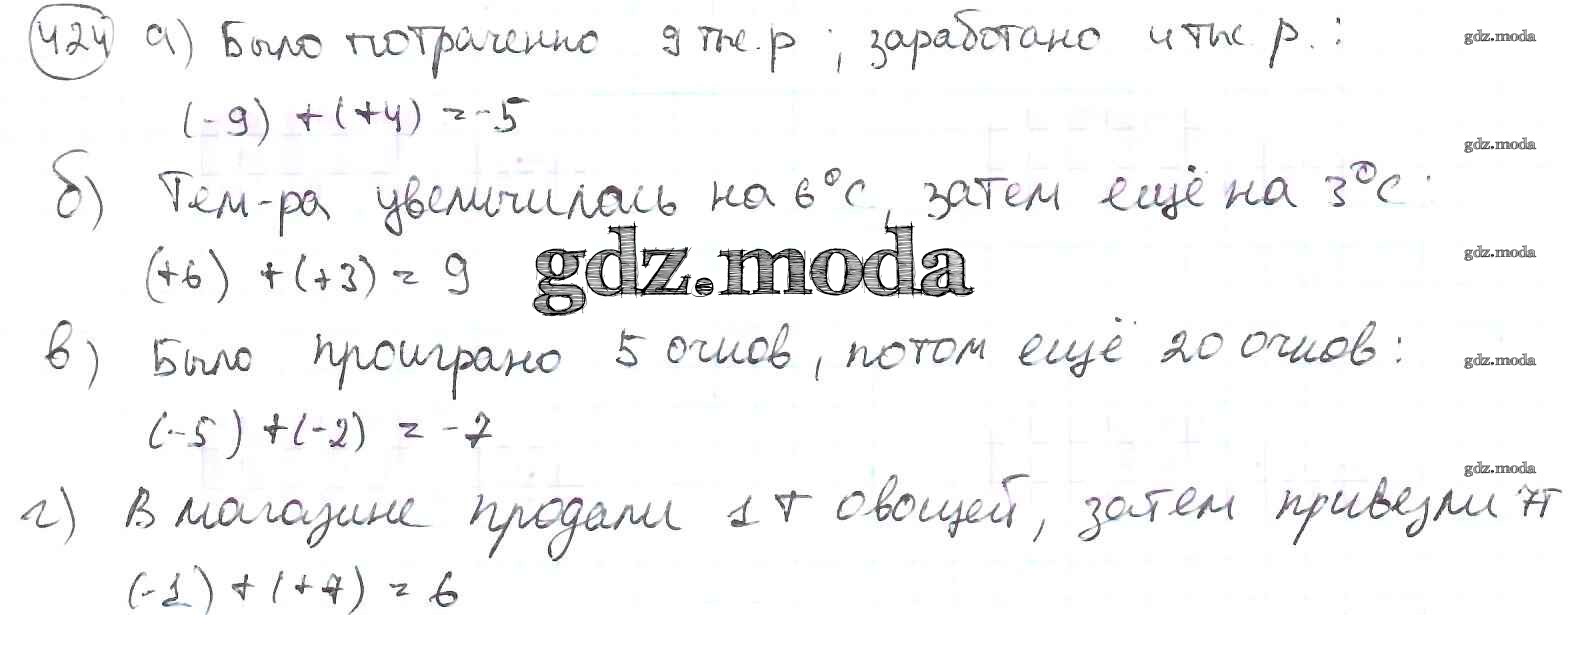 424 а) Было потраченно 9 тыс. р ; заработано 4 тыс. р. :
gdz.moda
(-9) + (+4) = -5
gdz.moda
б) Тем-ра увеличилась на 6°С, затем ещё на 3°С :
gdz.moda
(+6) + (+3) = 9
gdz.moda
в) Было проиграно 5 очков, потом ещё 20 очков :
gdz.moda
(-5) + (-2) = -7
gdz.moda
г) В магазине продали 1 т овощей, затем привезли 7т
(-1) + (+7) = 6